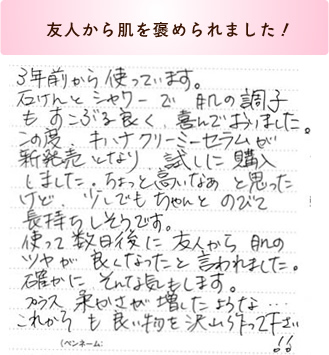 友人から肌を褒められました!
3年前から使っています。
石けんとシャワーで肌の調子
もすこぶる良く、喜んでおりました。
この度 キハナクリーミーセラムが
新発売となり、試しに購入
しました。ちょっと高いなぁと思った
けど、少しでもちゃんとのびて
長持ちしそうです。
使って数日後に友人から肌の
ツヤが良くなったと言われました。
確かにそんな気もします。
プラス 柔かさが増したような…
これからも良い物を沢山作って下さい
!!
(ペンネーム: